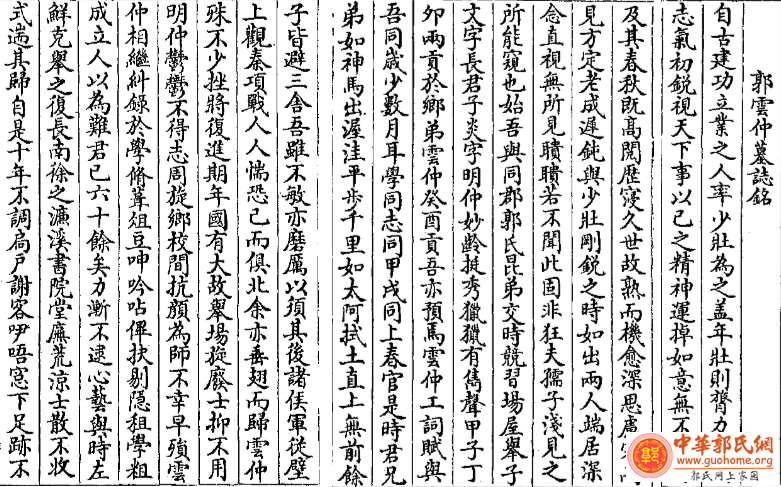 郭雲仲墓誌銘
自古建功立業之人率少壯為之盖年壯則膂力
志氣初銳視天下事以己之精神運掉如意無不
及其春秋既高閱歷寖久世故熟而機愈深思慮
見方定老成遲鈍與少壯剛銳之時如出兩人端居深
念直視無所見聵聵若不聞此固非狂夫孺子淺見之
所能窺也始吾與同郡郭氏昆弟交時競習場屋舉子
文字長君子炎字明仲妙齡挺秀獵獵有雋聲甲子丁
夘兩貢於鄉弟雲仲癸酉貢吾亦預焉雲仲工詞賦與
吾同歲少數月耳學同志同甲戌同上春官是時君兄
弟如神馬出渥洼平步千里如太阿拭土直上無前餘
子皆避三舍吾雖不敏亦磨厲以須其後諸侯軍從壁
上觀秦項戰人人惴恐已而俱北余亦垂翅而歸雲仲
殊不少挫將復進期年國有大故舉場旋廢士抑不用
明仲鬱鬱不得志周旋鄉校間抗顔為師不幸早殞雲
仲相繼糾錄於學脩葺俎豆呻吟呫俾扶剔隱租學粗
成立人以為難君已六十餘矣力漸不逮心藝與時左
鮮克舉之復長南徐之濂溪書院堂廡荒涼士散不收
式遄其歸自是十年不調扃戶謝客咿唔窓下足跡不
中華郭氏網
www.guohome.org
郭氏网上家园